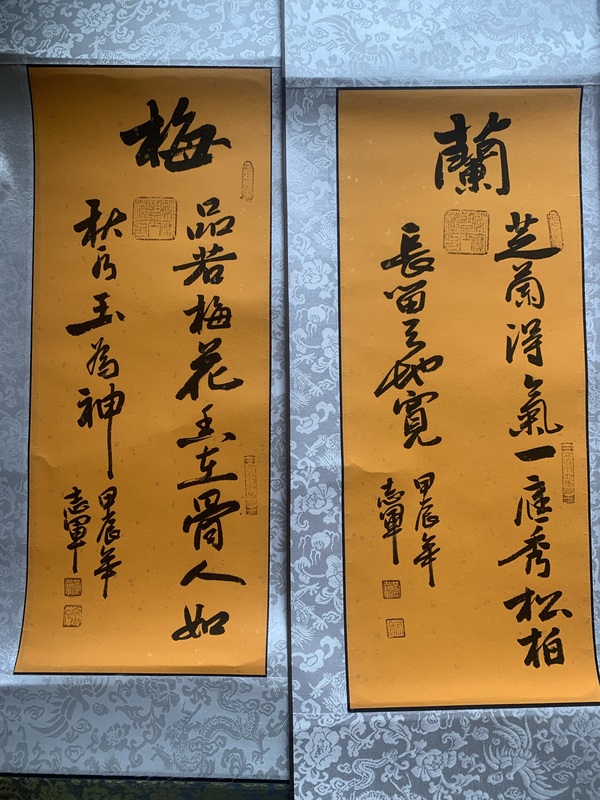 梅
品若梅花香在骨人如
秋水玉為神
甲辰年
志軍
蘭
芝蘭得氣一庭秀松柏
長留天地寬
甲辰年
志軍